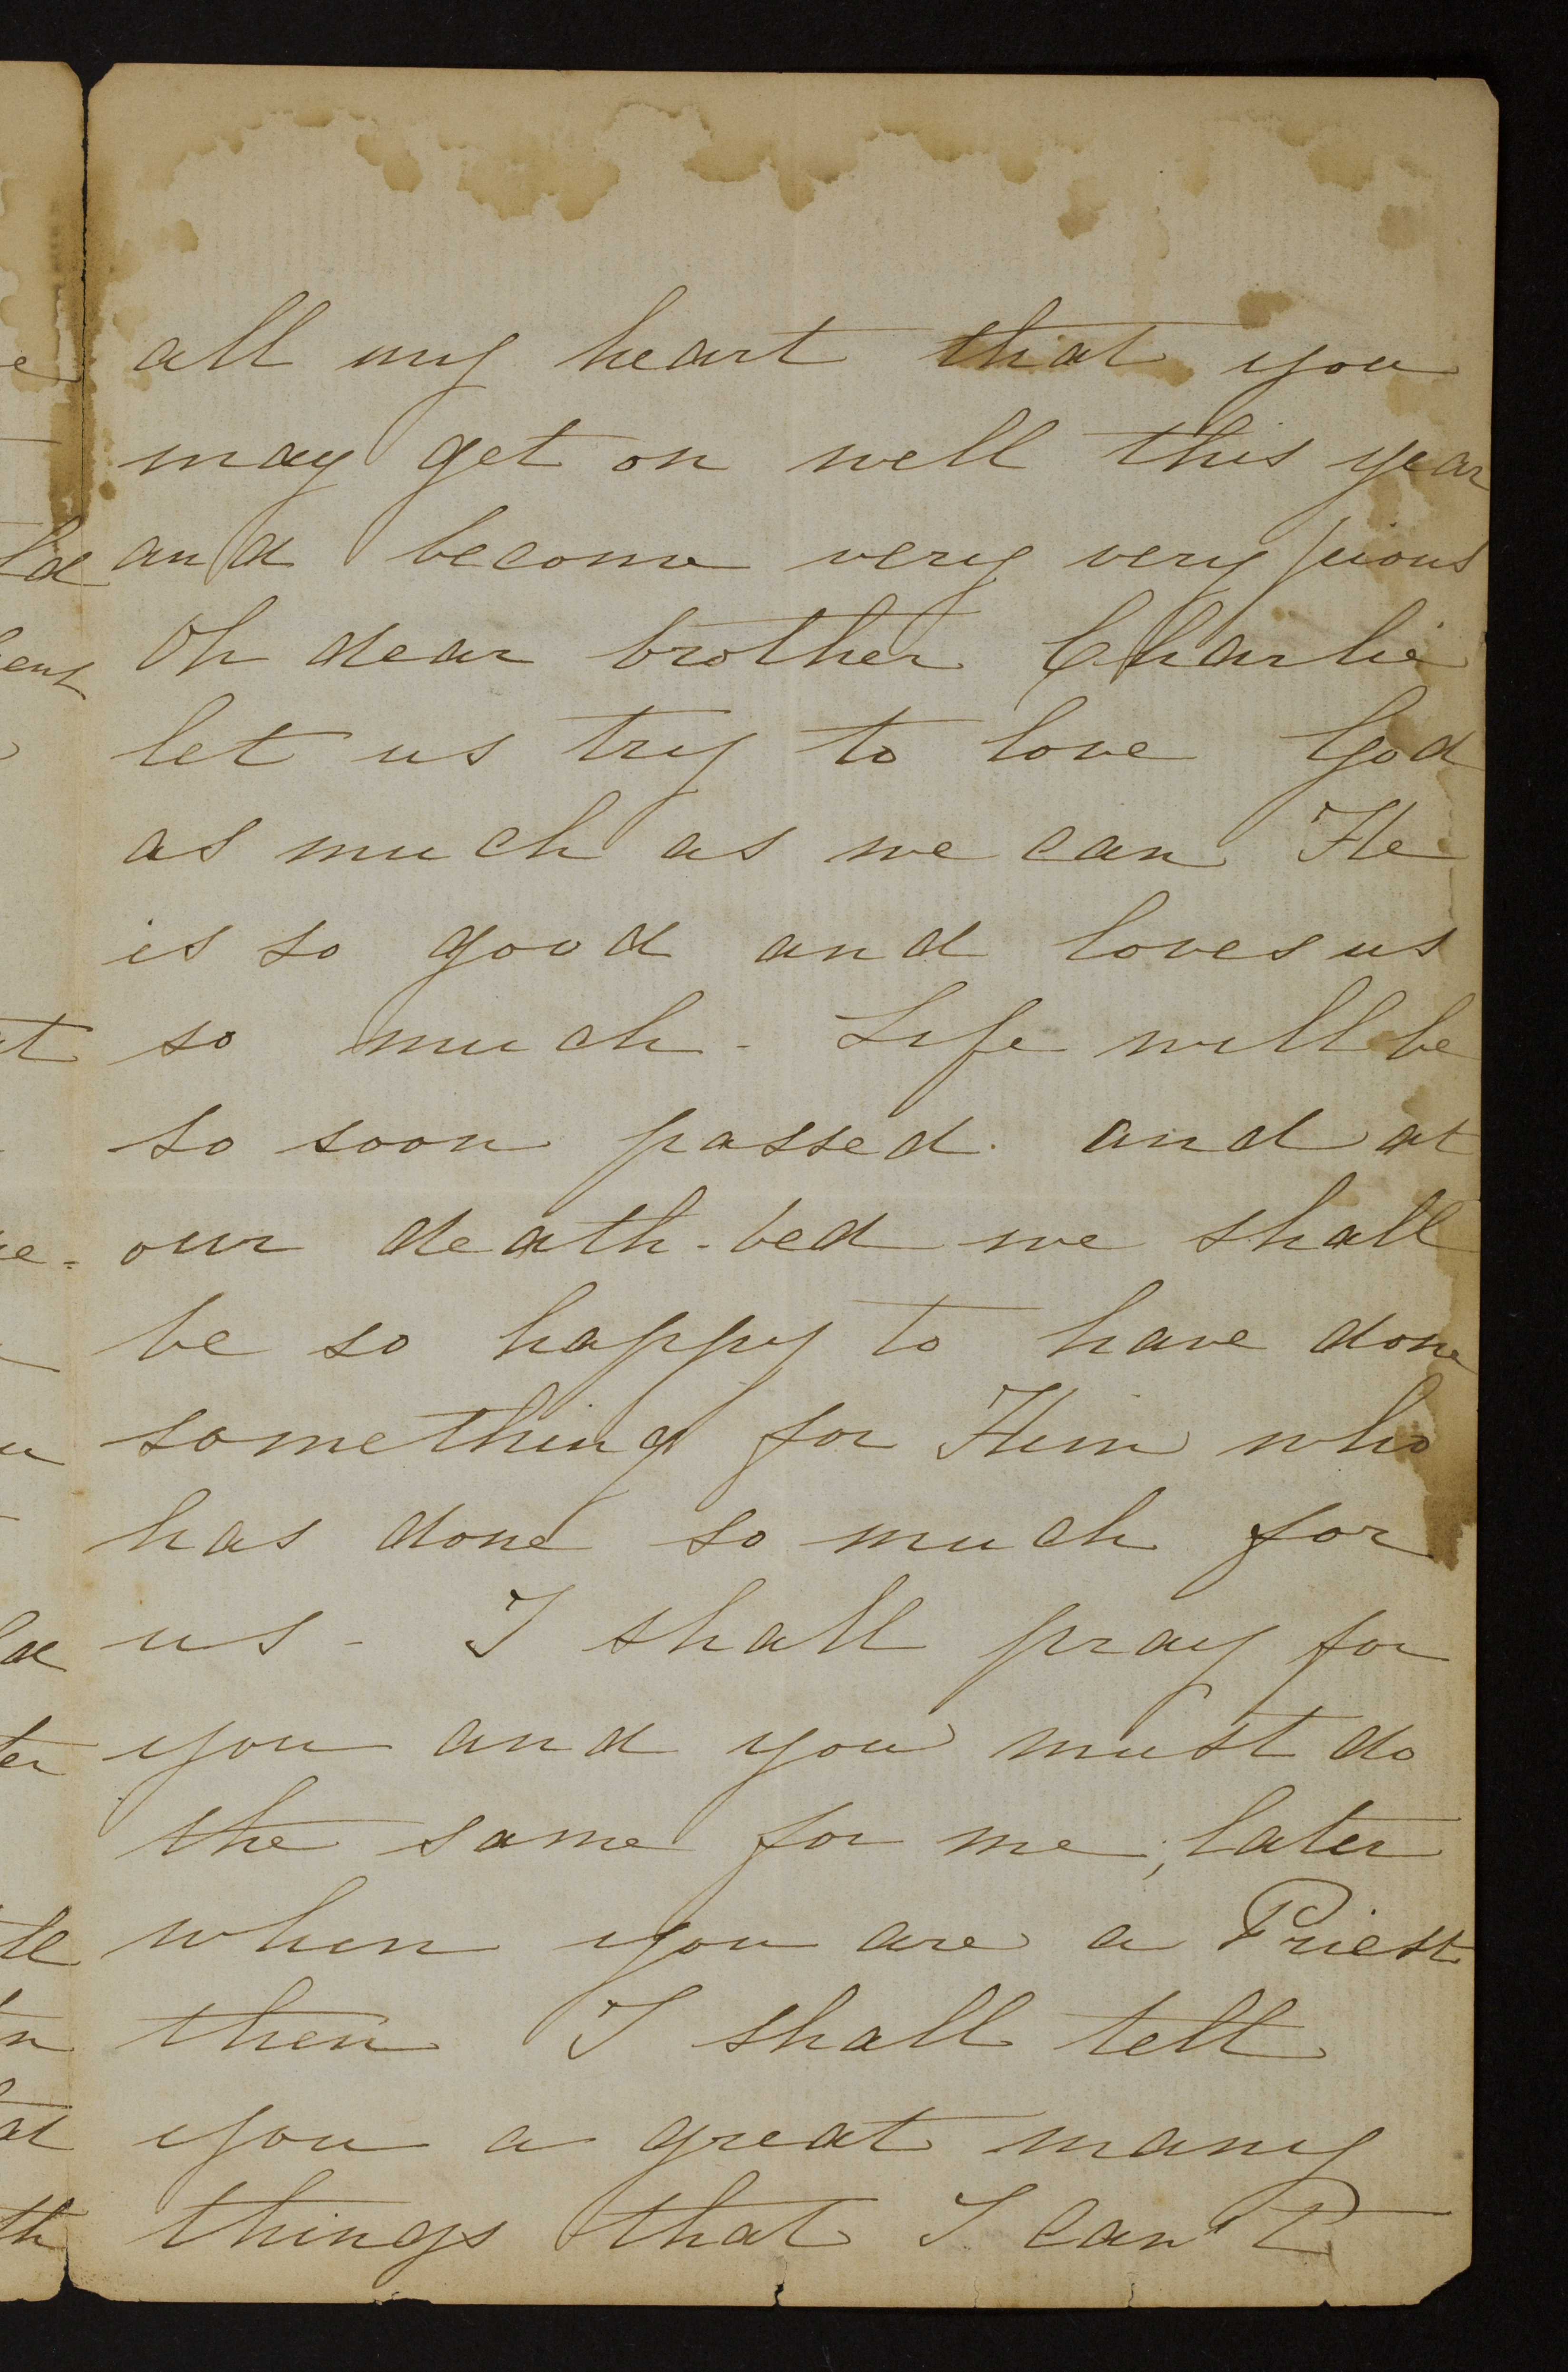 all my heart that you
may get on well this year
and become very very pious
Oh dear brother Charlie
let us try to love God
as much as we can He
is so good and loves us
so much - Life will be
so soon passed. and at
our death-bed we shall
be so happy to have done
something for Him who
has done so much for
us - I shall pray for
you and you must do
the same for me; later
when you are a Priest
then I shall tell
you a great many
things that I can't